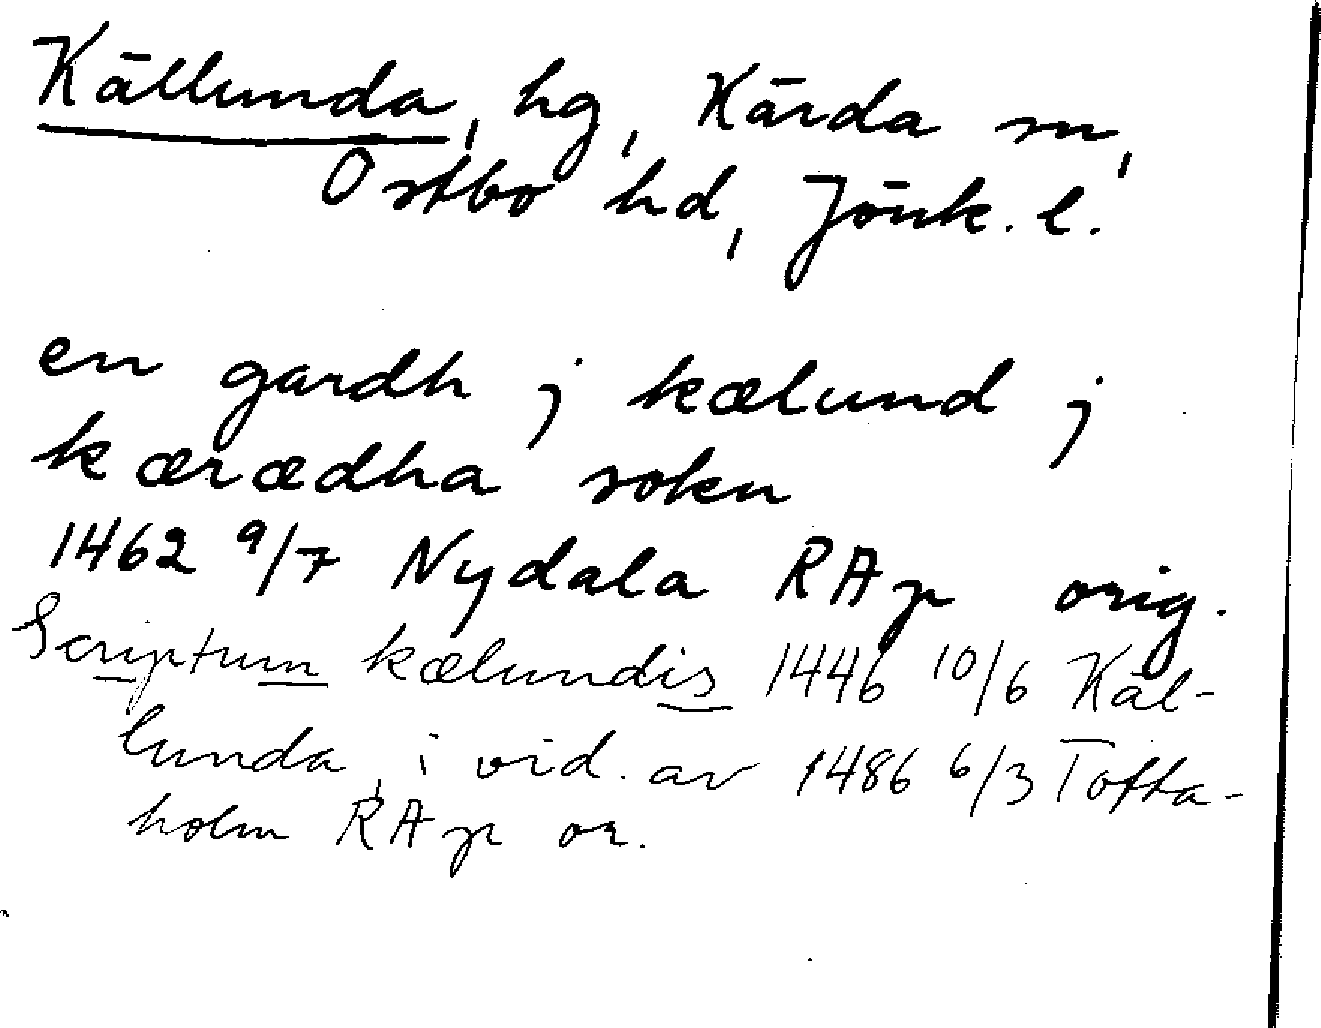 Källunda, hg, Kärda sn,
Östbo hd, Jönk. l.
en gardh j kælund j
kærædha sokn
1462 9/7 Nydala RAp orig.
Scriptum kælundis 1446 10/6 Käl-
lunda, i vid. av 1486 6/3 Tofta-
holm RAp or.